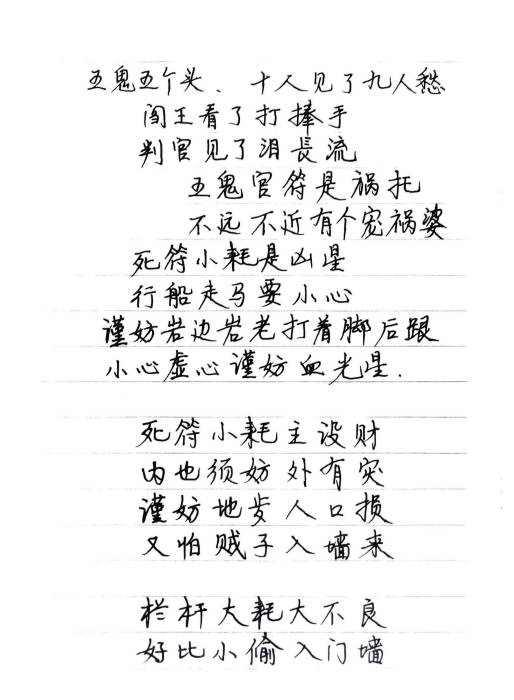 五鬼五个头、十人见了九人愁
闯王看了打捧手
判官见了泪長流
五鬼官符是祸托
不远不近有个宠祸婆
死符小耗是凶星
行船走马要小心
谨妨岩边岩老打着脚后跟
小心虚心谨妨血光星.
死符小耗主设财
内也须妨外有灾
谨妨地步人口损
又怕贼子入墙来
栏杆大耗大不良
好比小偷入门墙